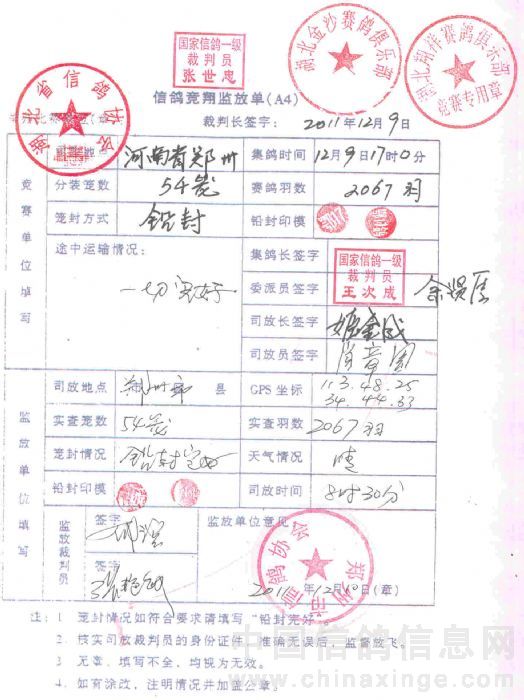 国家信鸽一级
裁判员
张世忠
湖北金沙赛鸽俱乐部
湖北翔祥赛鸽俱乐部
竞赛专用章
湖北省信鸽协会
信鸽竞翔监放单(A4)
裁判长签字: 2011年12月9日
竞赛单位填写
河南省郑州
集鸽时间 12月9日17时0分
分装笼数 54笼
赛鸽羽数 2067羽
笼封方式 铅封
铅封印模
途中运输情况:
一切完好
集鸽长签字
国家信鸽一级
裁判员
王次成
委派员签字
司放长签字
司放员签字
监放单位填写
司放地点 郑州市 县
GPS坐标 113.48.25
34.44.33
实查笼数 54笼
实查羽数 2067羽
笼封情况 铅封完好
天气情况 晴
铅封印模
司放时间 8时30分
监放裁判员
签字
签字
监放单位意见
郑州市信鸽协会
2011年12月10日(章)
注: 1 笼封情况如符合要求请填写“铅封完好”。
2. 核实司放裁判员的身份证件,准确无误后,监督放飞。
3 无章、填写不全,均视为无效。
4. 如有涂改,注明情况并加盖公章。
中国信鸽信息网
www.chinaxinge.com